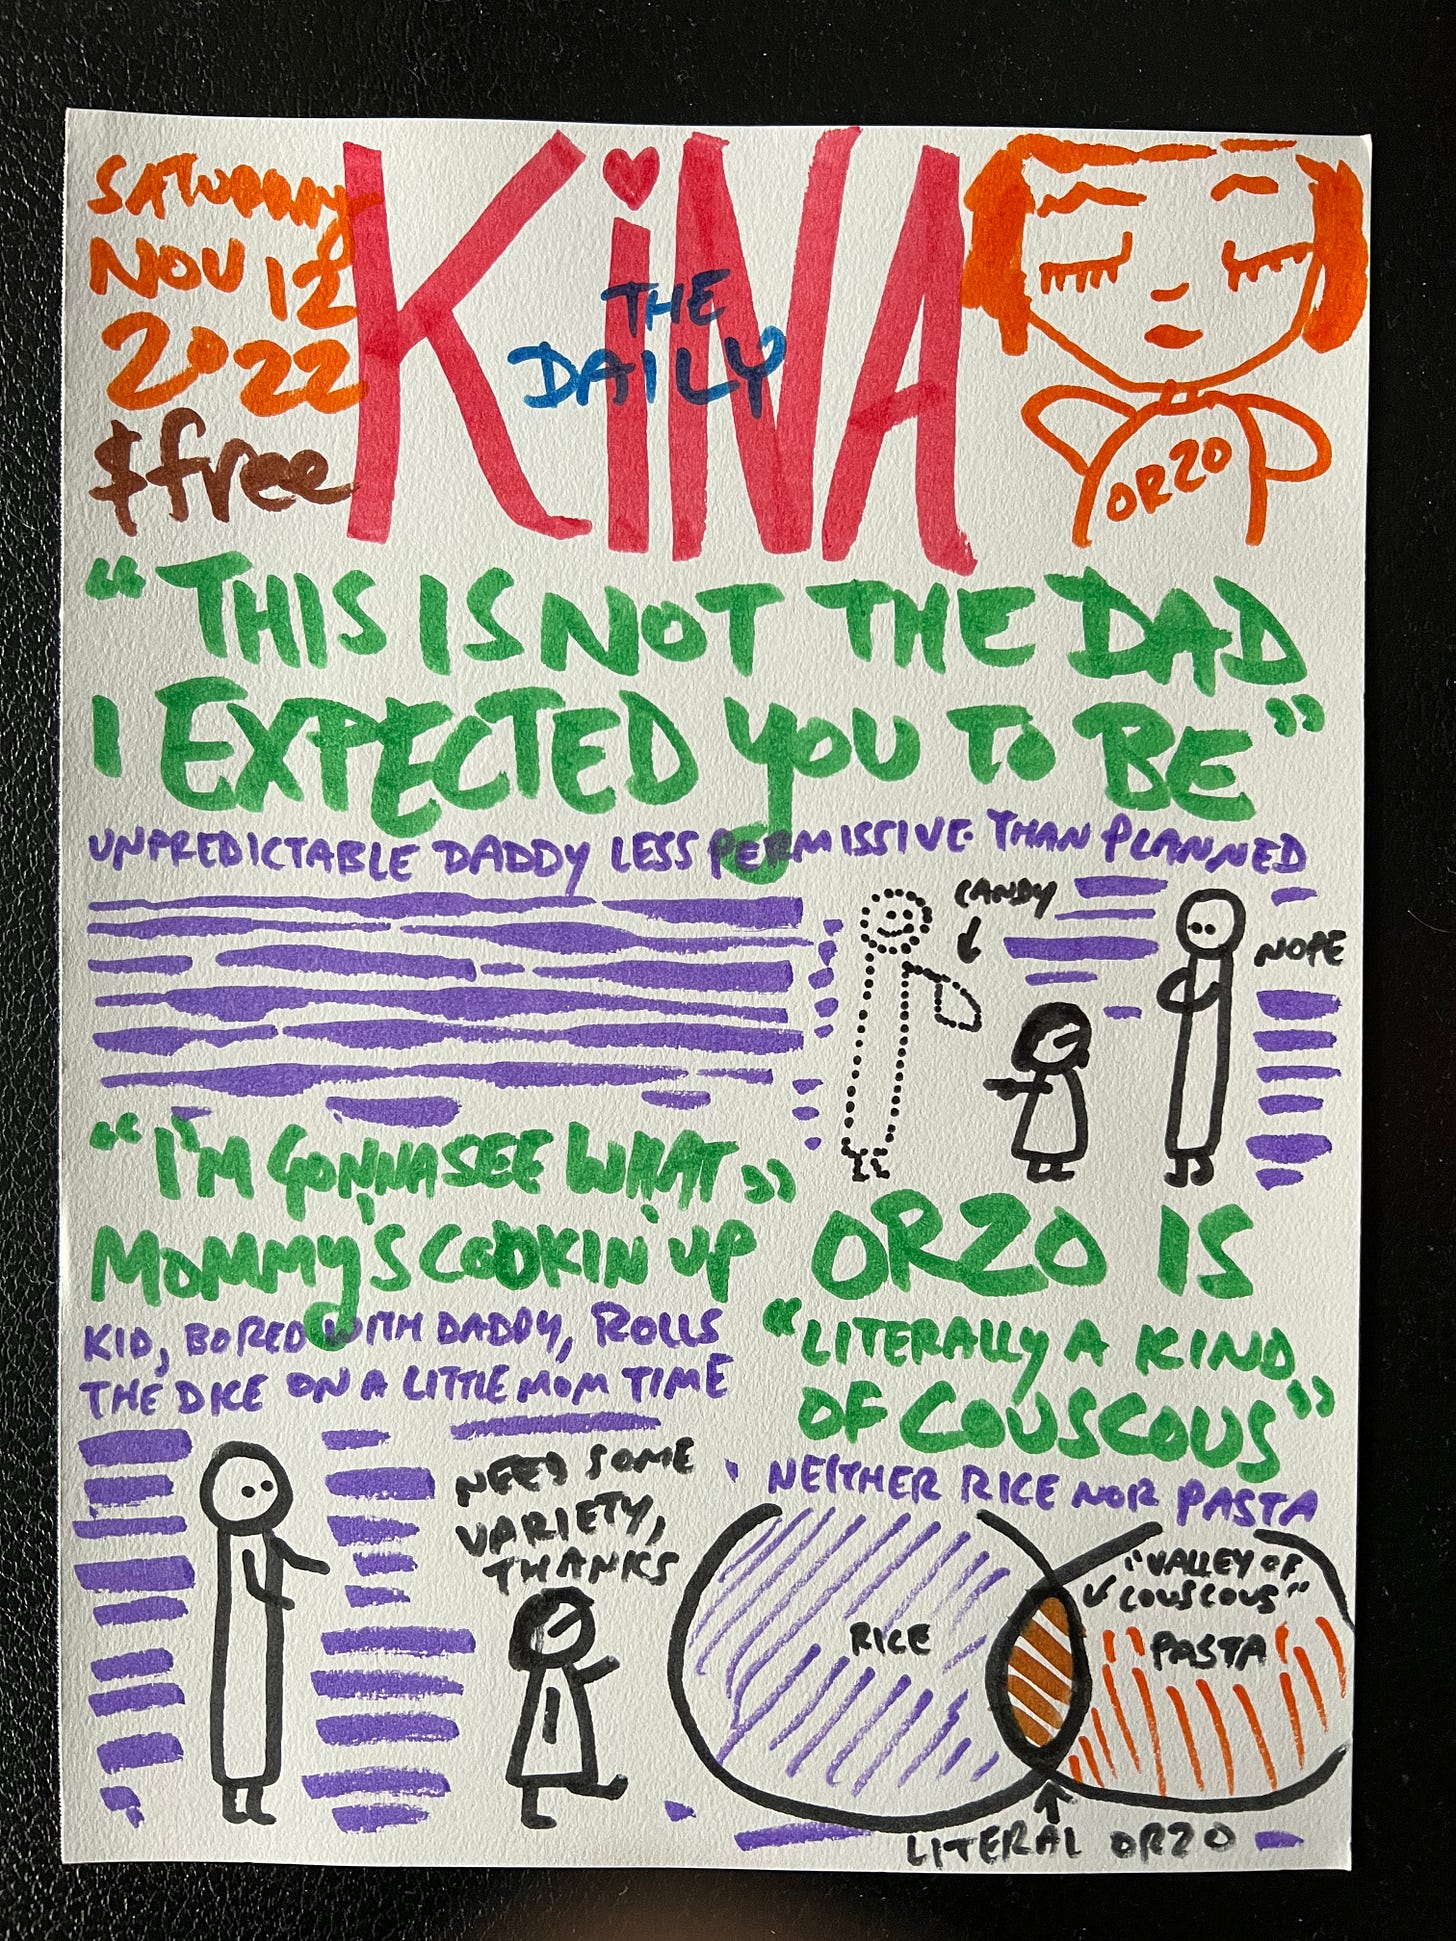 SATURDAY
NOV 12
2022
$free
KiNA
THE
DAILY
ORZO
“THIS IS NOT THE DAD
I EXPECTED YOU TO BE”
UNPREDICTABLE DADDY LESS PERMISSIVE THAN PLANNED
CANDY
NOPE
“I'M GONNA SEE WHAT
MOMMY'S COOKIN' UP”
KID, BORED WITH DADDY, ROLLS
THE DICE ON A LITTLE MOM TIME
NEED SOME
VARIETY,
THANKS
ORZO IS
“LITERALLY A KIND
OF COUSCOUS”
NEITHER RICE NOR PASTA
RICE
“VALLEY OF
COUSCOUS”
PASTA
LITERAL ORZO